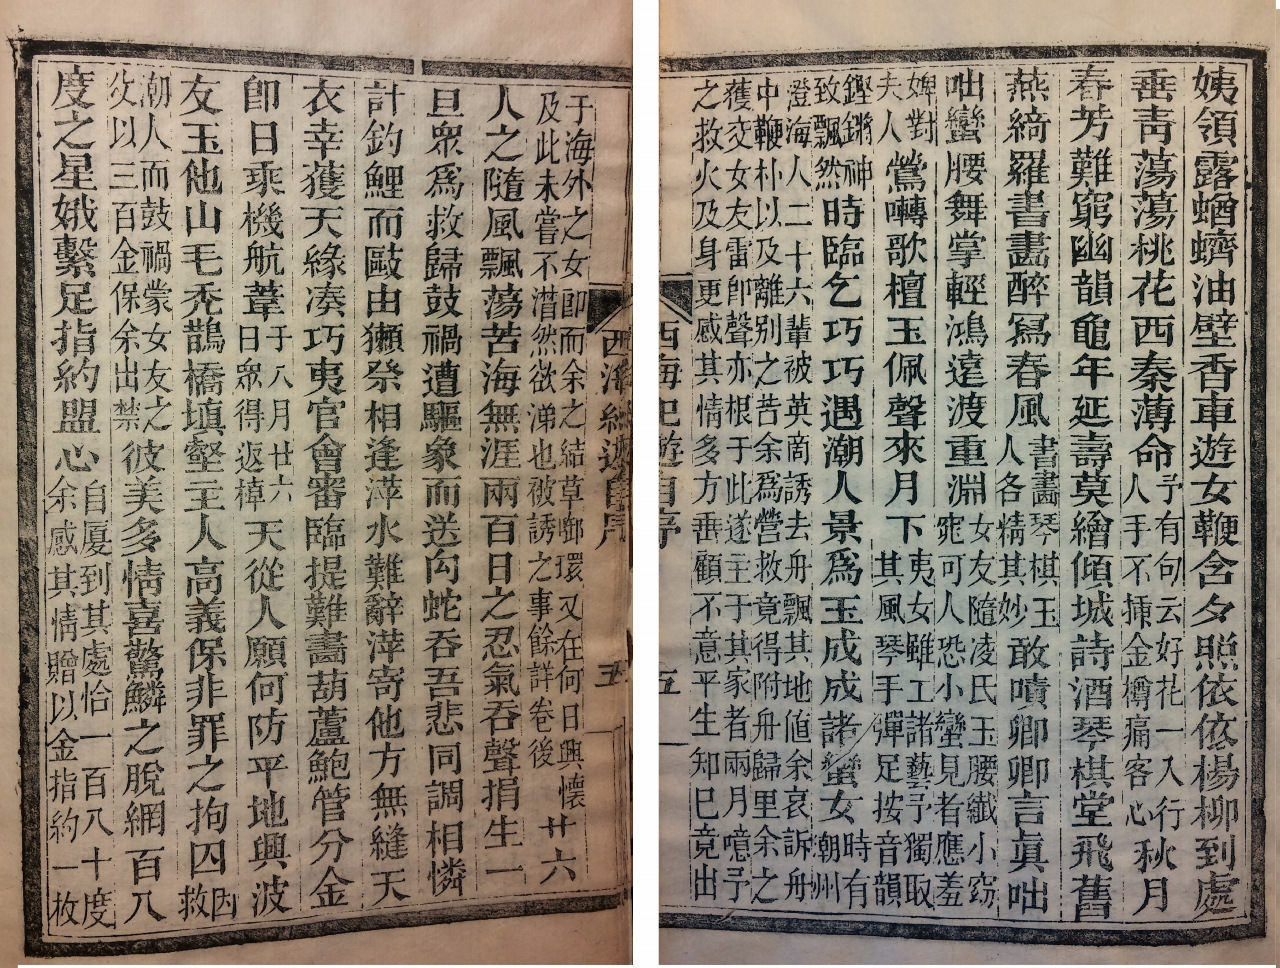 姨領露蝤蠐油壁香車遊女鞭含夕照依依楊柳到處
垂靑蕩蕩桃花西秦薄命予有句云好花一入行秋月人手不揷金樽痛客心
春芳難窮幽韻龜年延壽莫繪傾城詩酒琴棋堂飛舊
燕綺羅書畵醉寫春風書畵琴棋玉人各精其妙敢嘖卿卿言眞咄
咄蠻腰舞掌輕鴻遠渡重淵女友隨凌氏玉腰纖小窈窕可人恐小蠻見者應羞
婢對夫人鶯囀歌檀玉佩聲來月下夷女雖工諸藝予獨取其風琴手彈足按音韻
鏗鏘神致飄然時臨乞巧巧遇潮人景爲玉成成諸蠻女時有潮州
澄海人二十六輩被英商誘去舟飄其地値余哀訴舟
中鞭朴以及離別之苦余爲營救竟得附舟歸里余之
獲交女友雷卽聲亦根于此遂主于其家者兩月噫予
之救火及身更感其情多方垂顧不意平生知巳竟出
西海紀遊自序
五
于海外之女卽而余之結草啣環又在何日興懷廿六
及此未嘗不潸然欲涕也被誘之事餘詳卷後
人之隨風飄蕩苦海無涯兩百日之忍氣吞聲捐生一
旦衆爲救歸鼓禍遭驅象而送肉蛇吞吾悲同調相憐
計釣鯉而歐由獺祭相逢萍水難辭萍寄他方無縫天
衣幸獲天緣湊巧夷官會審臨提難畵葫蘆鮑管分金
卽日乘機航葦于八月廿六日衆得返棹天從人願何防平地興波
友玉他山毛禿鵲橋塡壑主人高義保非罪之拘囚因救
潮人而鼓禍蒙女友之彼美多情喜驚鱗之脫網百八
攵以三百金保余出禁
度之星娥繫足指約盟心自厦到其處恰一百八十度余感其情贈以金指約一枚